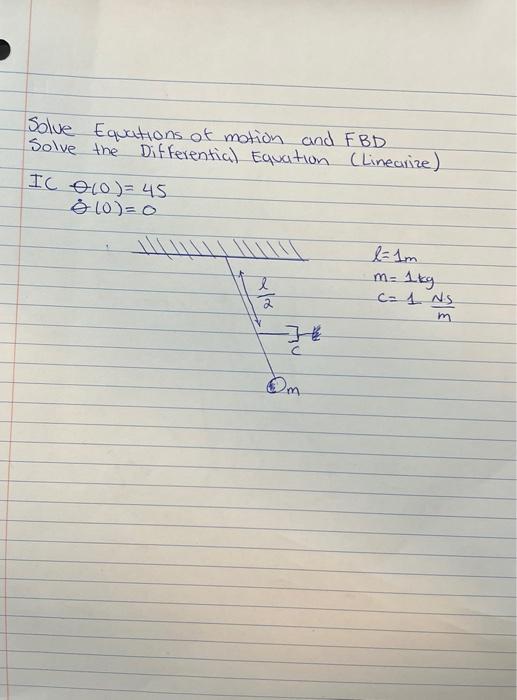 Solve Equations of motion and FBD
Solve the Differential Equation (Linearize)
IC θ(0)=45
θ̇(0)=0
l=1m
m=1kg
c=1 N·s/m
l/2
c
m